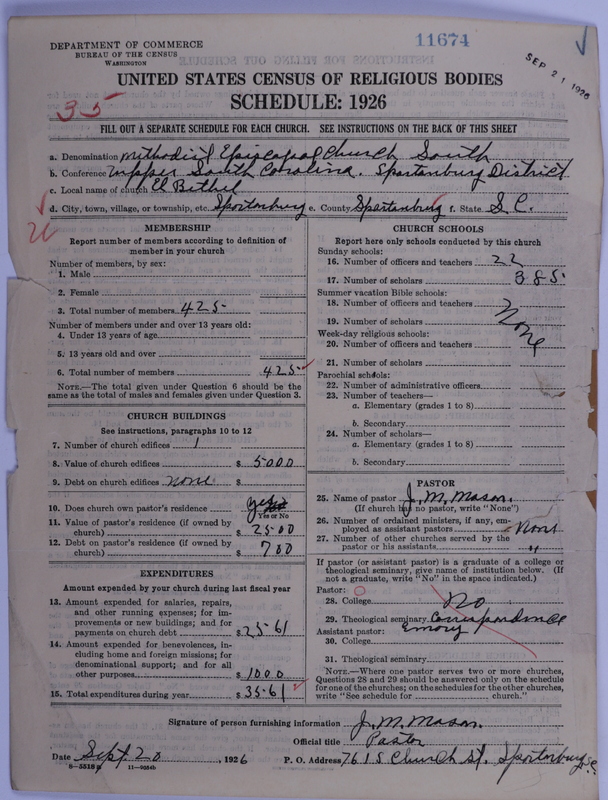 DEPARTMENT OF COMMERCE
BUREAU OF THE CENSUS
WASHINGTON
11674
SEP 21 1926
UNITED STATES CENSUS OF RELIGIOUS BODIES
SCHEDULE: 1926
35
FILL OUT A SEPARATE SCHEDULE FOR EACH CHURCH. SEE INSTRUCTIONS ON THE BACK OF THIS SHEET
a. Denomination Methodist Episcopal Church South
b. Conference Upper South Carolina. Spartanburg District
c. Local name of church El Bethel
d. City, town, village, or township, etc. Spartanburg e. County Spartanburg f. State S. C.
MEMBERSHIP
Report number of members according to definition of member in your church
Number of members, by sex:
1. Male
2. Female
3. Total number of members 425
Number of members under and over 13 years old:
4. Under 13 years of age
5. 13 years old and over
6. Total number of members 425
NOTE.—The total given under Question 6 should be the same as the total of males and females given under Question 3.
CHURCH BUILDINGS
See instructions, paragraphs 10 to 12
7. Number of church edifices 1
8. Value of church edifices $ 5000
9. Debt on church edifices none $
10. Does church own pastor's residence yes
Yes or No
11. Value of pastor's residence (if owned by church) $ 2500
12. Debt on pastor's residence (if owned by church) $ 700
EXPENDITURES
Amount expended by church during last fiscal year
13. Amount expended for salaries, repairs, and other running expenses; for improvements or new buildings; and for payments on church debt $ 2561
14. Amount expended for benevolences, including home and foreign missions; for denominational support; and for all other purposes $ 1000
15. Total expenditures during year $ 3561
CHURCH SCHOOLS
Report here only schools conducted by this church
Sunday schools:
16. Number of officers and teachers 22
17. Number of scholars 385
Summer vacation Bible schools:
18. Number of officers and teachers
19. Number of scholars None
Week-day religious schools:
20. Number of officers and teachers
21. Number of scholars
Parochial schools:
22. Number of administrative officers
23. Number of teachers—
a. Elementary (grades 1 to 8)
b. Secondary
24. Number of scholars—
a. Elementary (grades 1 to 8)
b. Secondary
PASTOR
25. Name of pastor J. M. Mason.
(If church has no pastor, write "None")
26. Number of ordained ministers, if any, employed as assistant pastors None
27. Number of other churches served by the pastor or his assistants "
If pastor (or assistant pastor) is a graduate of a college or theological seminary, give name of institution below. (If not a graduate, write "No" in the space indicated.)
Pastor:
28. College No
29. Theological seminary Correspondence
Assistant pastor: Emory
30. College
31. Theological seminary
NOTE.—Where one pastor serves two or more churches, Questions 28 and 29 should be answered only on the schedule for one of the churches; on the schedules for the other churches, write "See schedule for church."
Signature of person furnishing information J. M. Mason.
Official title Pastor
Date Sept 20, 1926 P. O. Address 761 S Church St. Spartanburg S.C.
8—5518 11—9054b